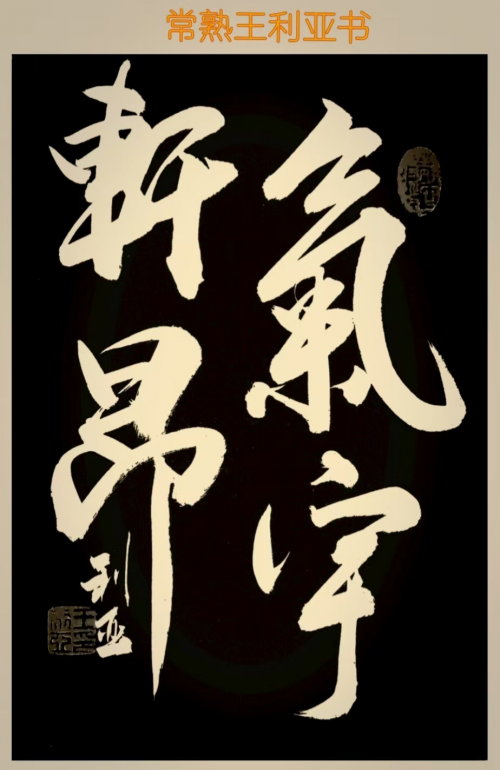 常熟王利亚书
氣宇
軒昂
利亚